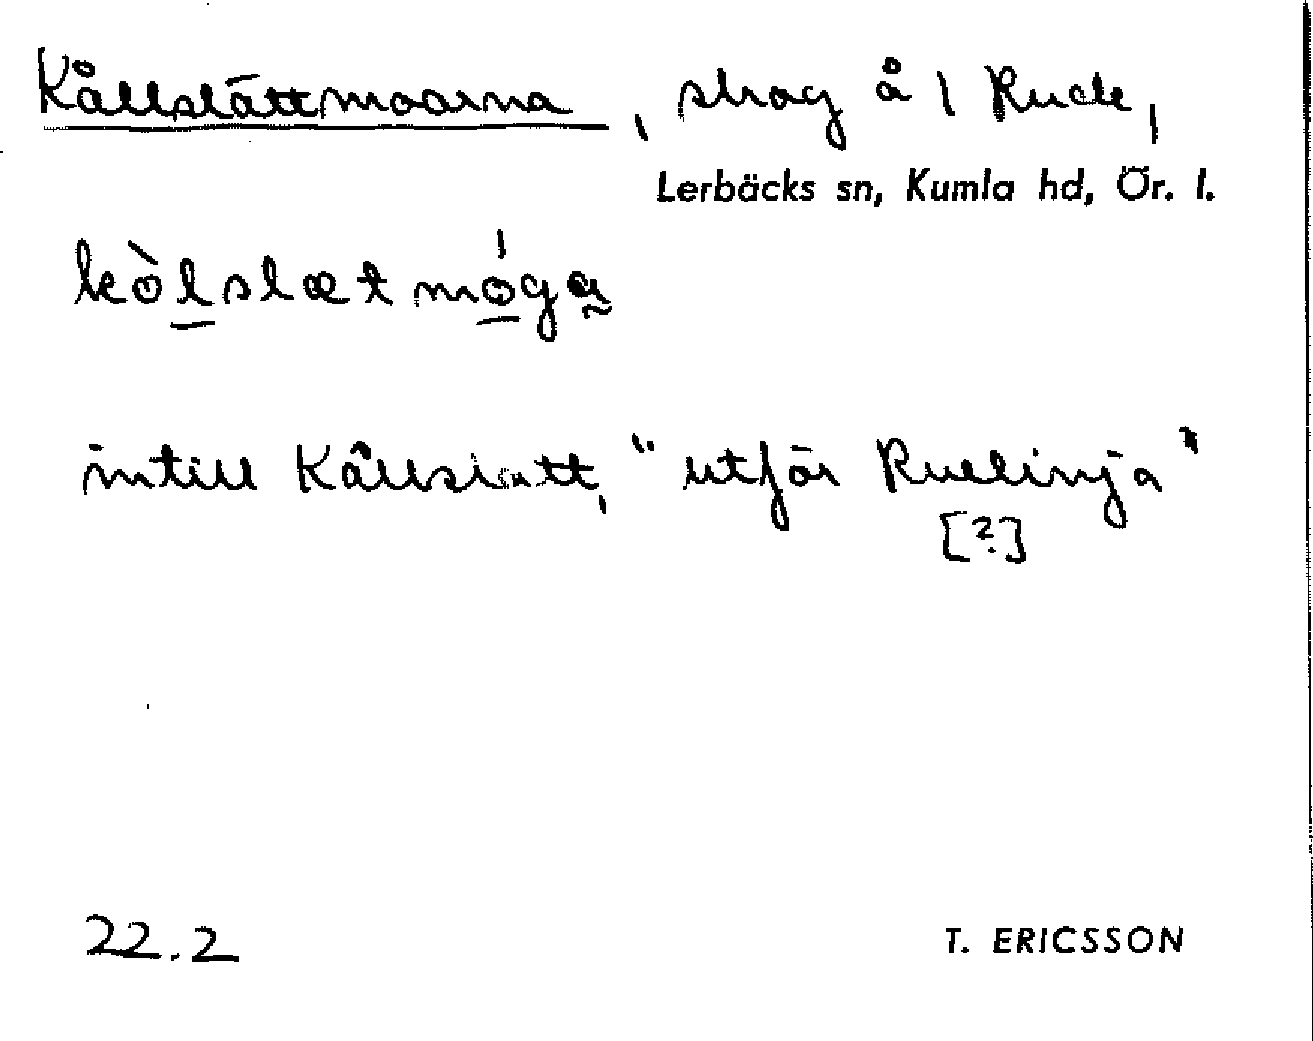 Kållslättmoarna, skog å 1 Rude,
Lerbäcks sn, Kumla hd, Ör. l.
kòlslætmóga
intill Kållslätt, "utför Ruelinja"
[?]
22.2
T. ERICSSON